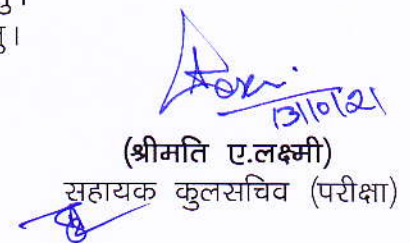 नु।
नु।
13/10/21
(श्रीमति ए.लक्ष्मी)
सहायक कुलसचिव (परीक्षा)